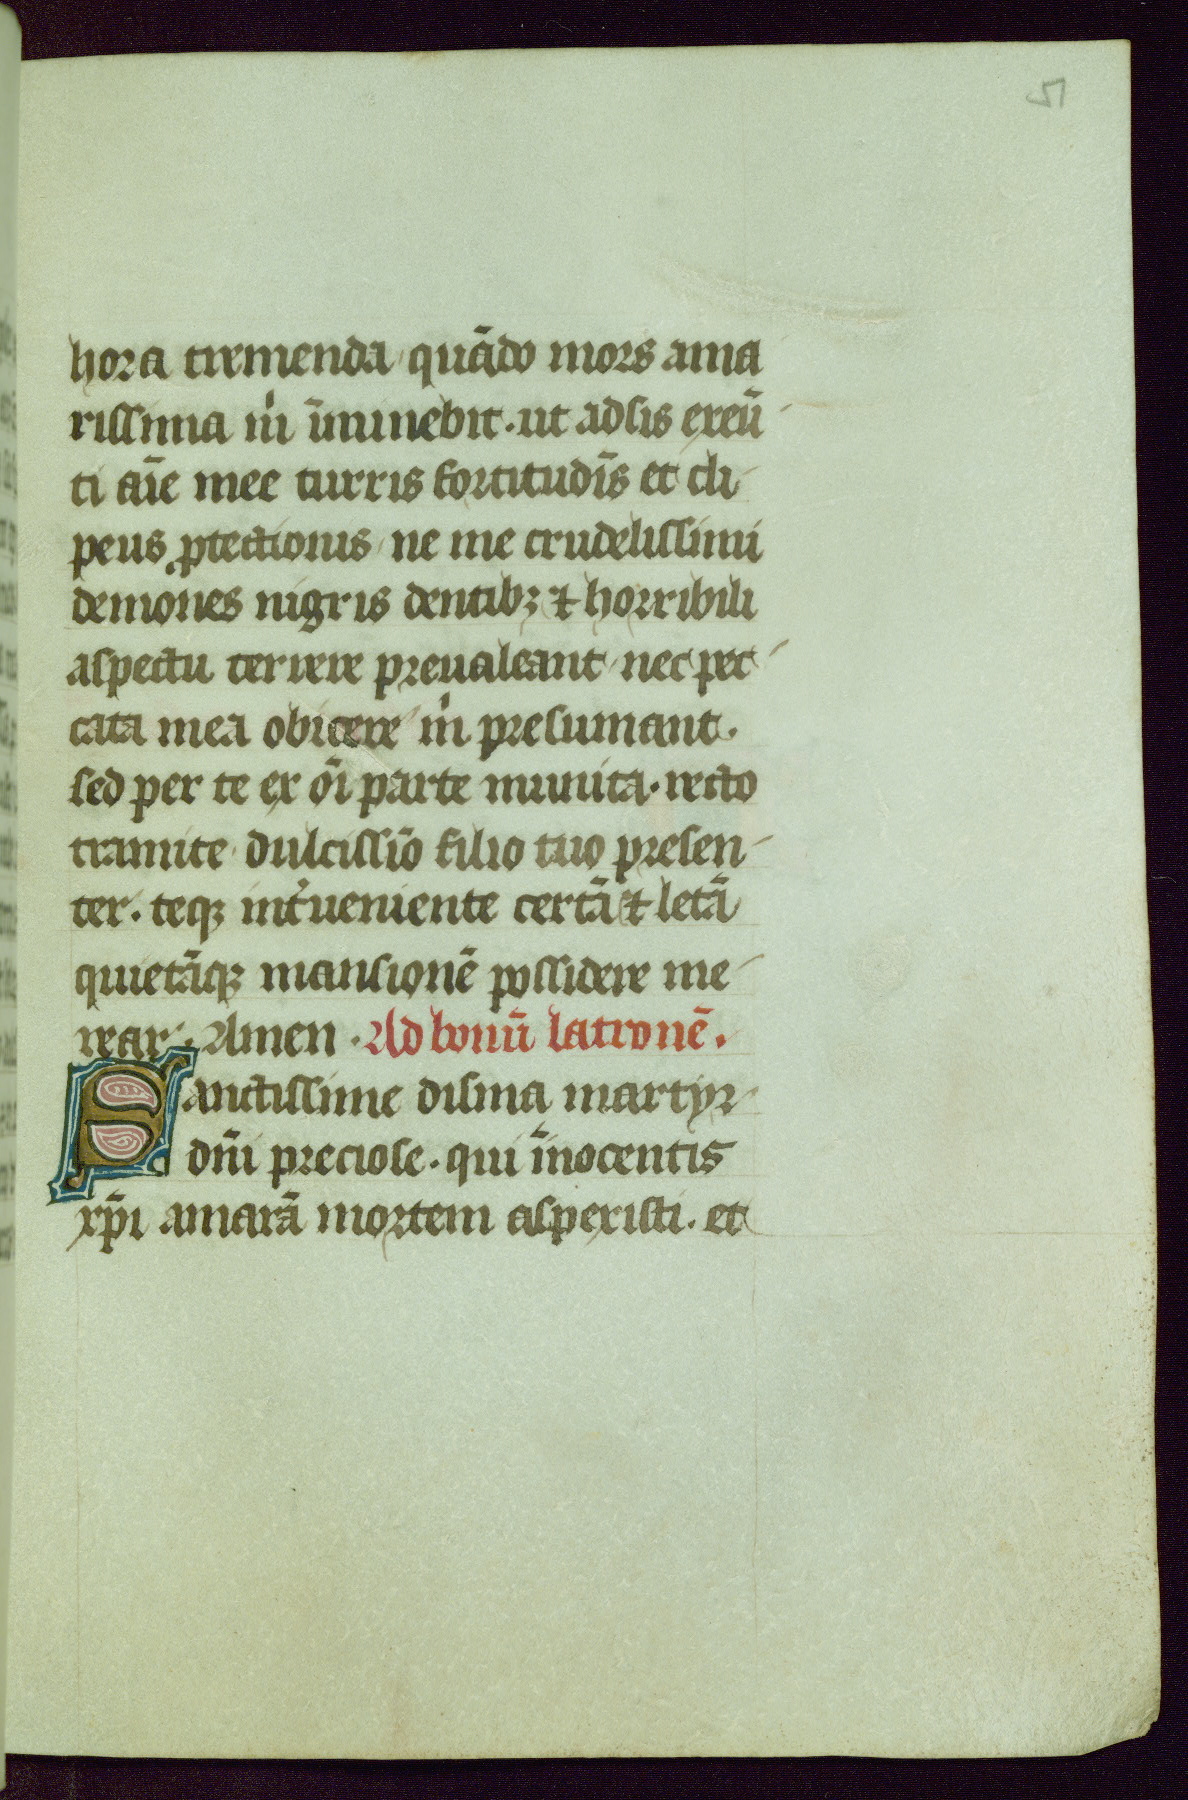 51
hora tremenda quãdo mors ama
rissima m̊i ĩminebit. ut adsis exeũ
ti aĩe mee turris fortitudĩs et cli
peus ꝓtectionis ne me crudelissimi
demones nigris dentibꝫ ⁊ horribili
aspectu terrere preualeant nec pec
cata mea obicere m̊i presumant.
sed per te ex õi parte munita. recto
tramite dulcissiõ filio tuo presen
ter. teqꝫ int̉ueniente certã ⁊ letã
quietãqꝫ mansionẽ possidere me
rear. Amen. Ad bonũ latronẽ.
Sanctissime disma martyr
dñi preciose. qui ĩnocentis
xp̃i amarã mortem aspexisti. et